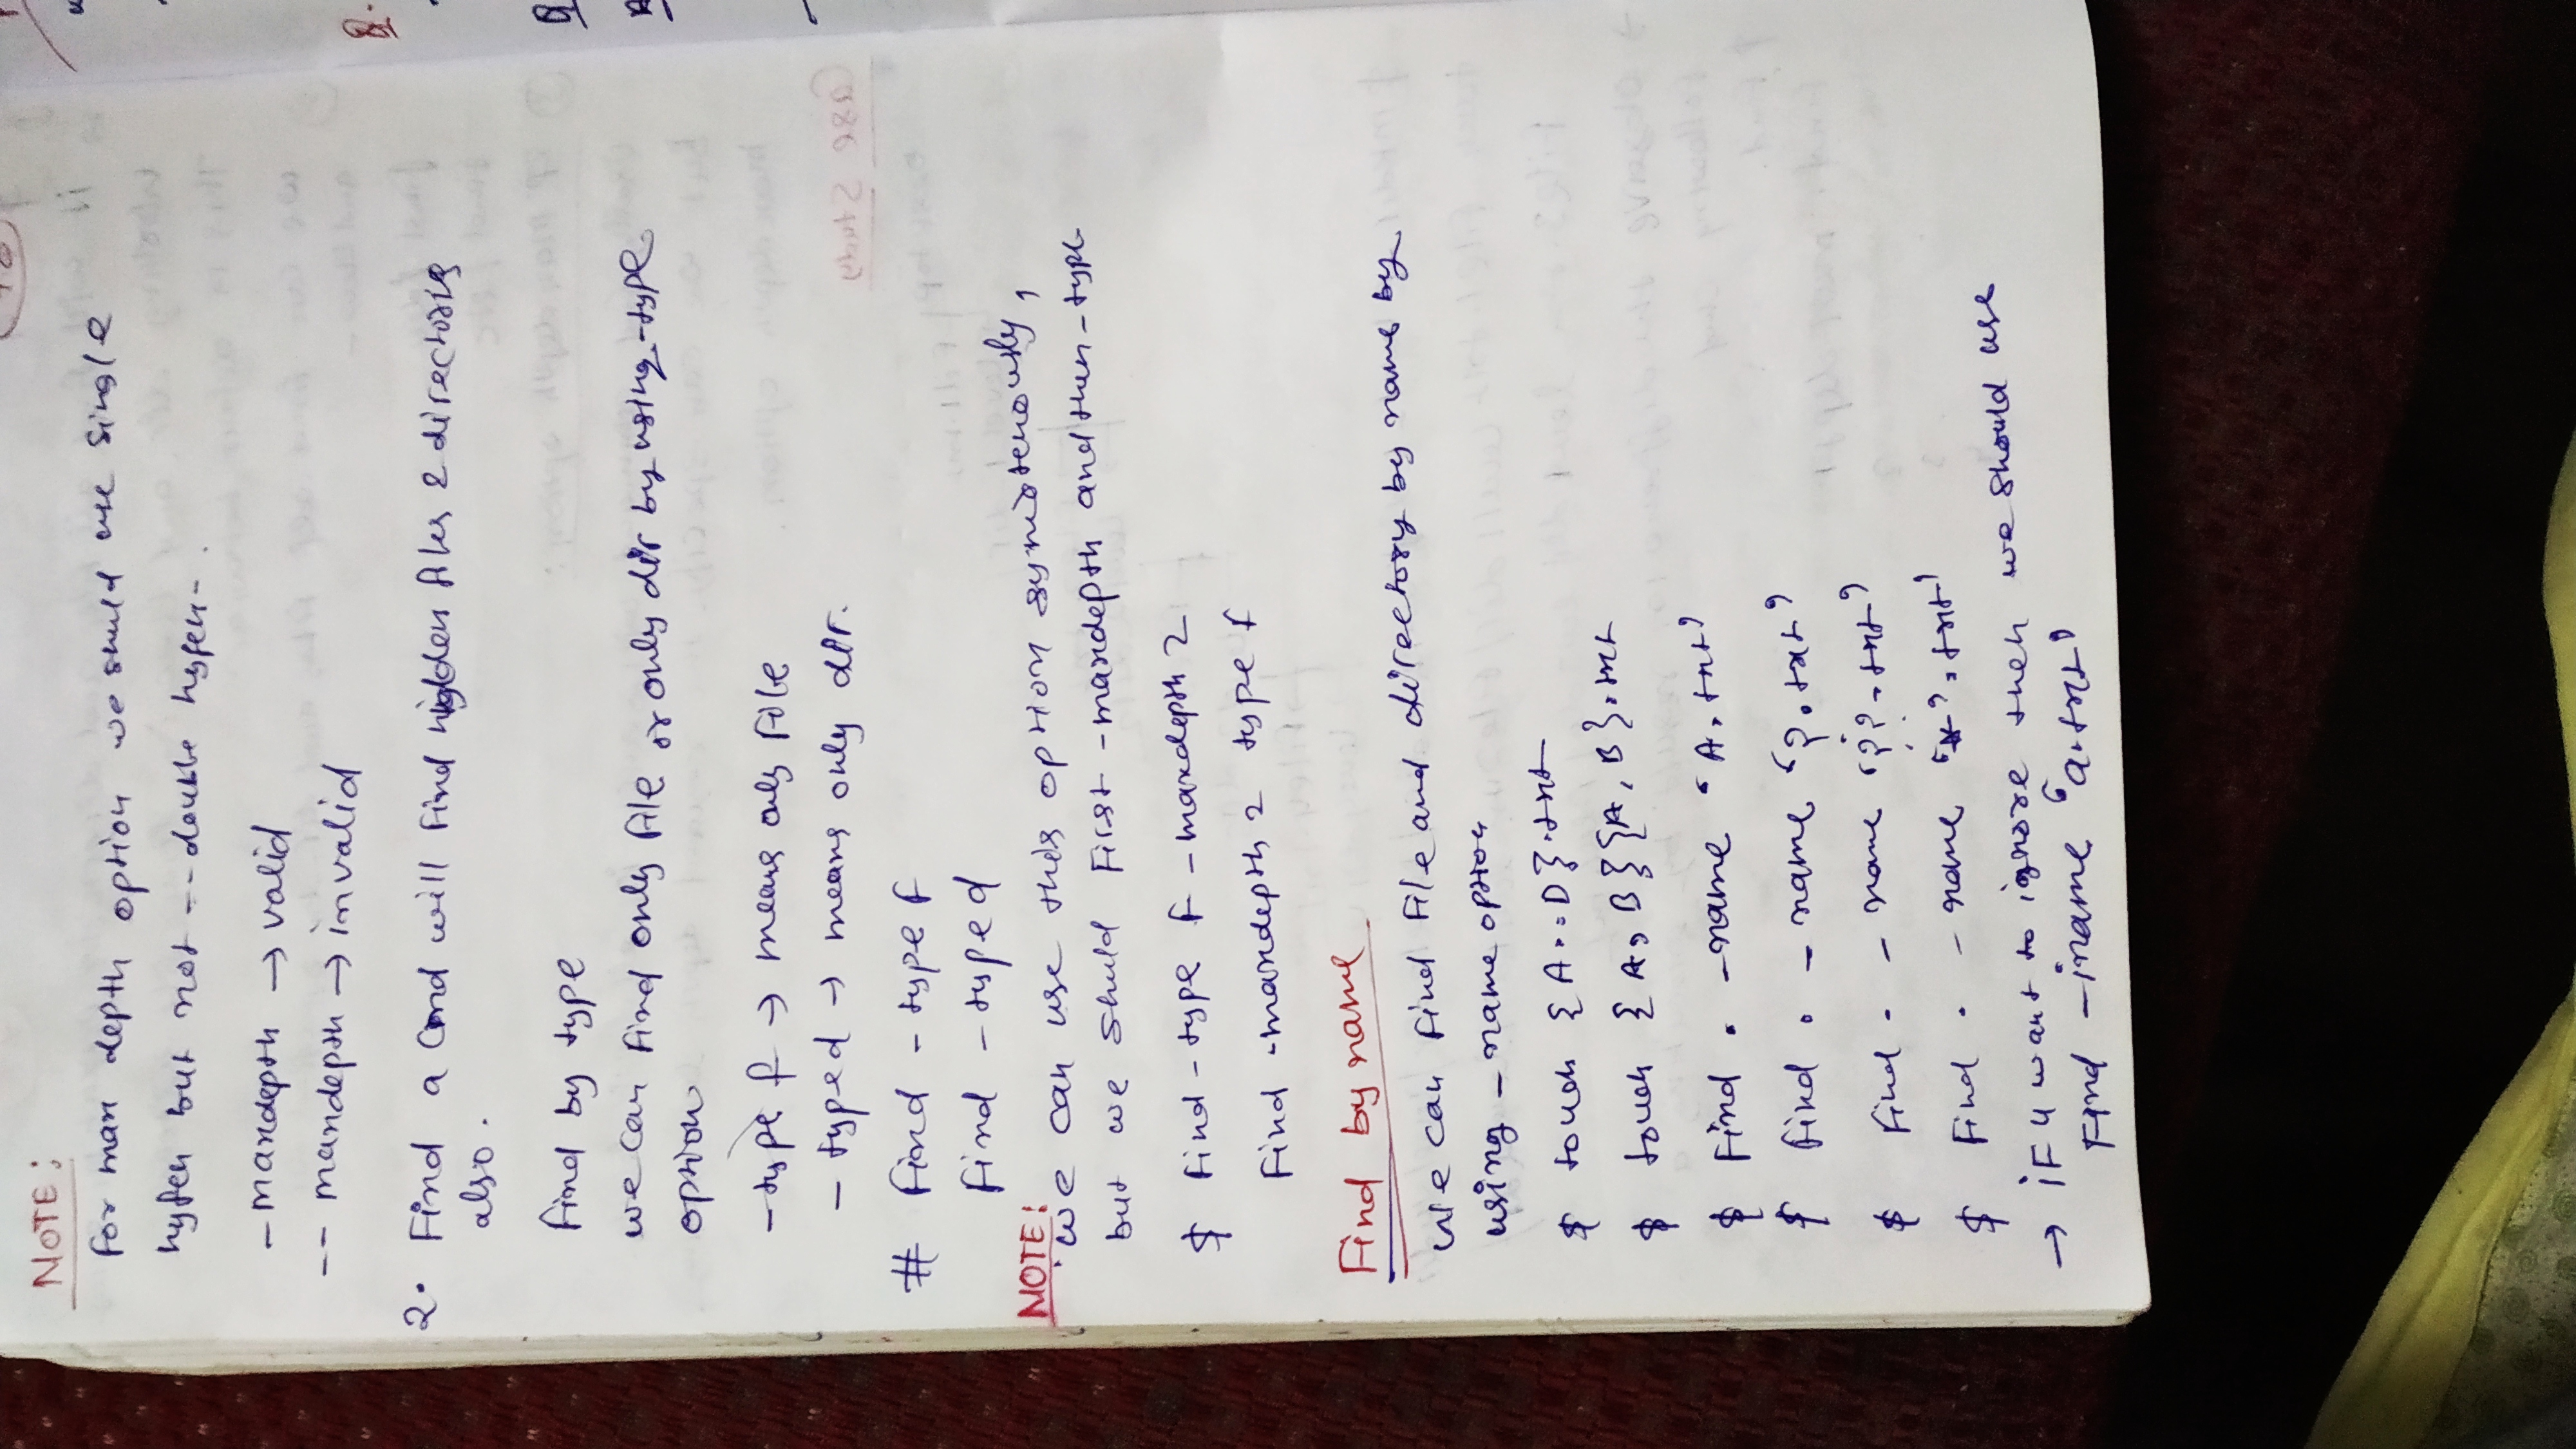 NOTE:
For max depth option we shuld use single
hyfen but not -- double hyfen-.
- maxdepth → valid
-- maxdepth → invalid
2. Find a Cmd will Find hidden files & directories
also.
Find by type
we can Find only file or only dir by using -type
option
- type f → means only File
- type d → means only dir.
# Find - type f
Find - type d
NOTE:
we can use this option
but we shuld First - maxdepth and then - type
$ Find - type f - maxdepth 2
Find - maxdepth 2 type f
Find by name
we can Find File and directory by name by
using - name option
$ touch {A..D}.txt
$ touch {A,B}{A,B}.txt
$ Find . - name 'A.txt'
$ Find . - name '?.txt'
$ Find . - name '??.txt'
$ Find . - name '*'.txt'
→ iF u want to ignore then we should use
Find - iname 'a.txt'